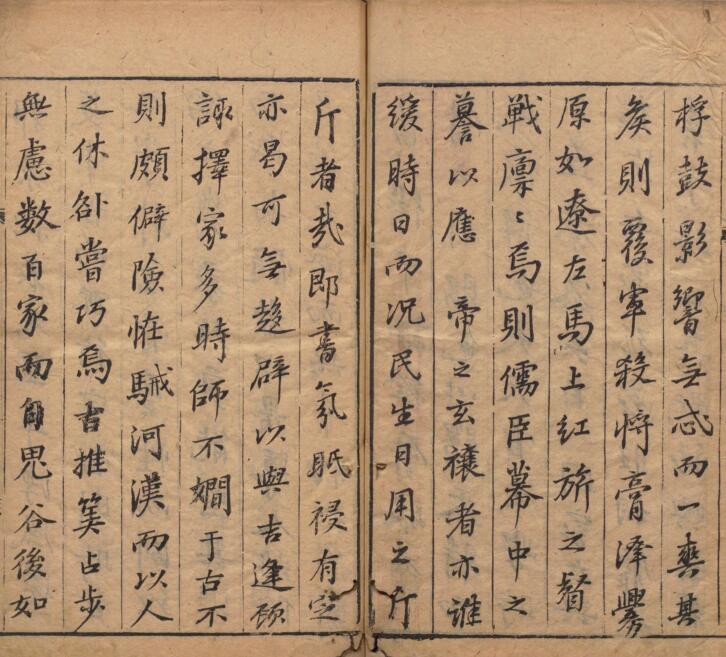 桴鼓影響無忒而一爽其
矦則覆軍殺將膏澤釁
原如遼左馬上紅旂之督
戰凛〻焉則儒臣幕中之
謩以應 帝之玄禳者亦誰
緩時日而況民生日用之斤
斤者㢤即書氛眂祲有定
亦曷可無趍辟以與吉逢顧
諏擇家多時師不嫺于古不
則頗僻險恠駴河漢而以人
之休咎嘗巧焉吉推筭占步
無慮数百家而自思谷後如